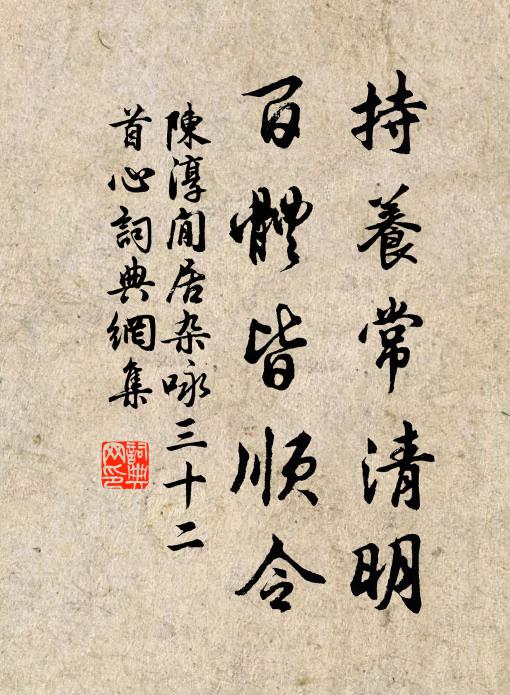 持養常清明
百體皆順令
陳淳閒居杂咏三十二
首心詞典網集
詞典網印